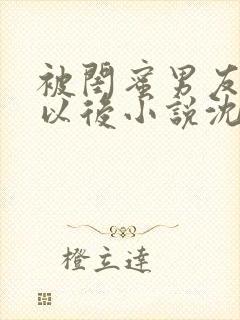 被閨蜜男友
以後小說沈
橙立達